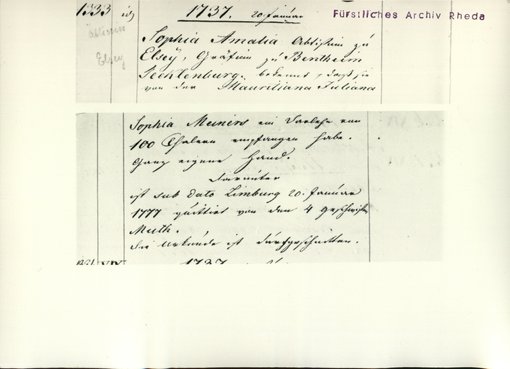 1333 1737. 20 Januar Fürstliches Archiv Rheda
Sophia Amalia Äbtissin zu
Elsey
Elsey, Gräfin zu Bentheim
Tecklenburg, bekennt, daß sie
von der Mauriliana Juliana
Sophia Meiners ein Darlehn von
100 Thalern empfangen habe.
Ganz eigene Hand.
Darunter
ist sub dato Limburg 20. Januar
1777 quittirt von den 4 Geschwister
Muth.
Die Urkunde ist durchgeschnitten.
1737.